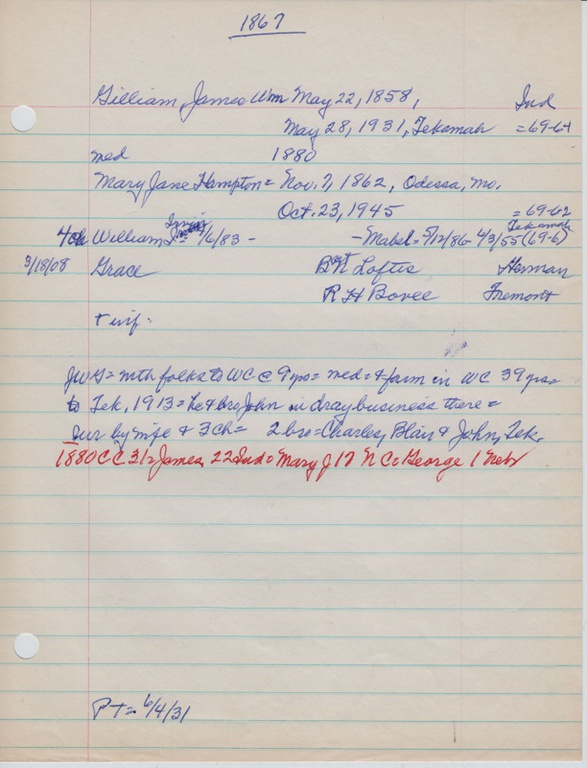 1867
Gilliam, James Wm May 22, 1858, Ind
May 28, 1931, Tekamah = 69-64
med 1880
Mary Jane Hampton = Nov. 7, 1862, Odessa, Mo.
Oct. 23, 1945 = 69-62
4 ch William Irvin 1/6/83 - - Mabel = 5/12/86 - 4/3/55 (69-6) Tekamah
3/18/08 Grace Bert Loftis Herman
R H Bovee Fremont
+ inf.
JWG = with folks to WC @ 9 yrs = med = + farm in WC 39 yrs =
to Tek, 1913 = he & bro John in dray business there =
Sur by wife & 3 ch = 2 bro = Charles, Blair & John, Tek.
1880 CC 31 = James, 22 Ind = Mary J 17 = George 1 Neb
PT = 6/4/31